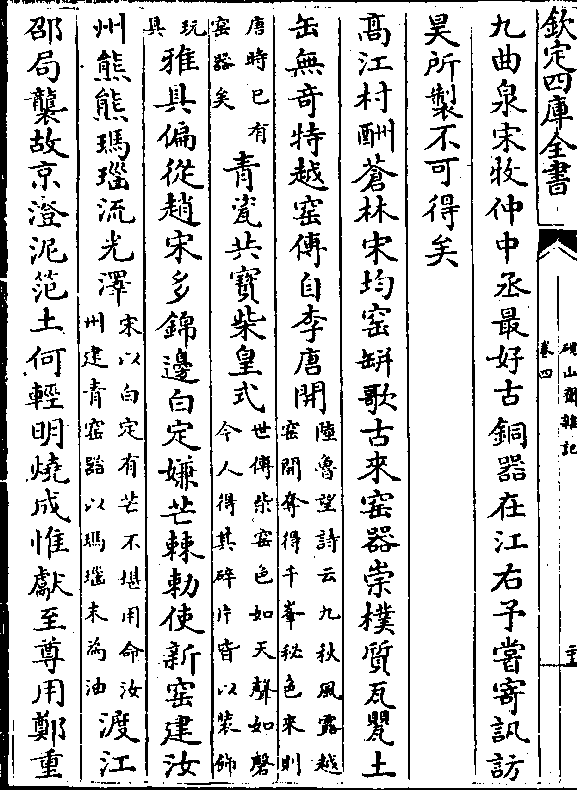 欽定四庫全書
硯山齋雜記
卷四
九曲泉宋牧仲中丞最好古銅器在江右予嘗寄訊訪
昊所製不可得矣
高江村酬蒼林宋均窑缾歌古來窑器崇樸質瓦甖土
缶無奇特越窑傳自李唐開陸魯望詩云九秋風露越窑開奪得千峯秘色來則
唐時已有窑器矣青瓷共寶柴皇式世傳柴窑色如天聲如磬今人得其碎片皆以裝飾
玩具雅具偏從趙宋多錦邊白定嫌芒棘勅使新窑建汝
州熊熊瑪瑙流光澤宋以白定有芒不堪用命汝州建青窑器以瑪瑙末為油渡江
邵局襲故京澄泥笵土何輕明燒成惟獻至尊用鄭重